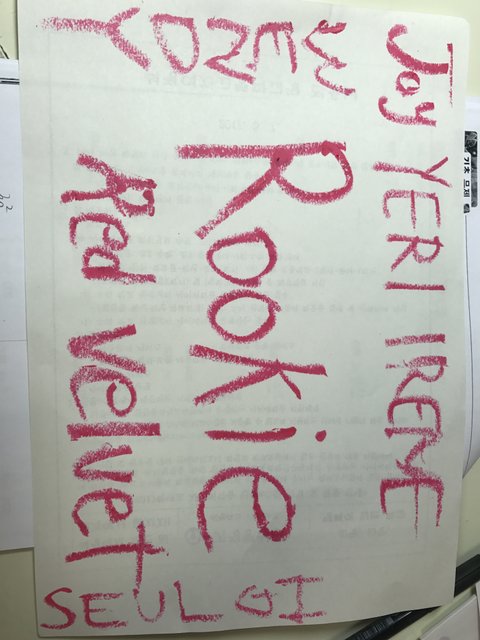 Joy YERI IRENE
WENDY
Rookie
Red Velvet
SEULGI
기초 문제